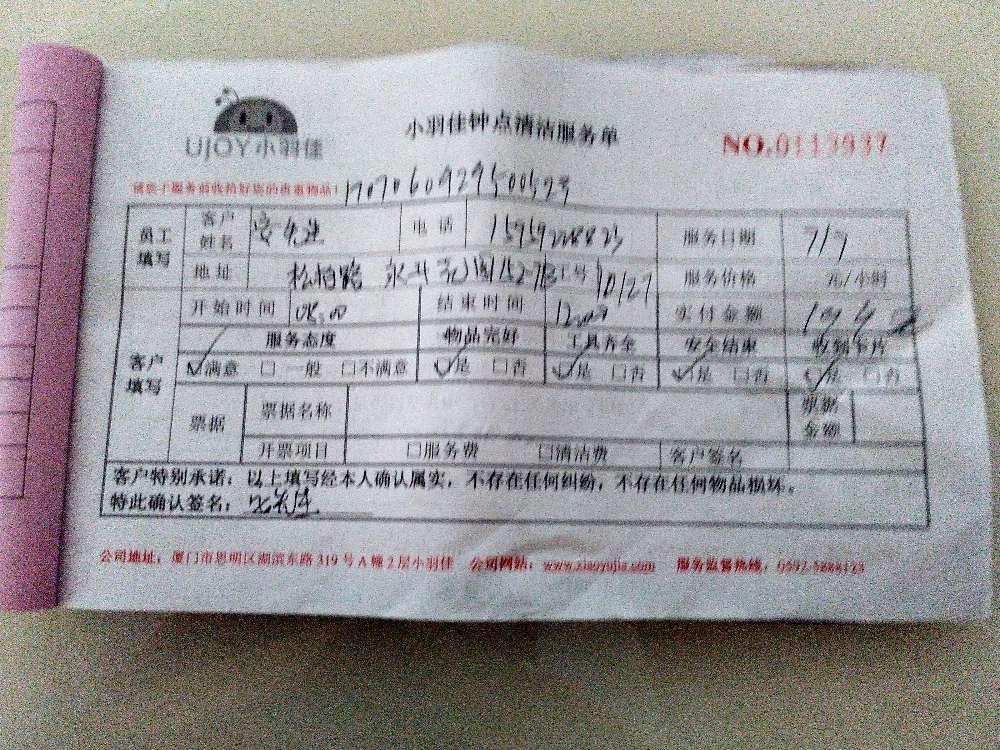 UJOY小羽佳
小羽佳钟点清洁服务单
NO.0113937
请您于服务前收拾好您的贵重物品!
员工填写 客户姓名 安先生 电话 服务日期 7/7
地址 松柏路 工号 服务价格 元/小时
开始时间 结束时间 实付金额
客户填写 服务态度 物品完好 工具齐全 安全结束 收到卡片
☑满意 □一般 □不满意 ☑是 □否 ☑是 □否 ☑是 □否 ☑是 □否
票据 票据名称 票据金额
开票项目 □服务费 □清洁费 客户签名
客户特别承诺:以上填写经本人确认属实,不存在任何纠纷,不存在任何物品损坏。
特此确认签名:
公司地址:厦门市思明区湖滨东路319号A幢2层小羽佳 公司网站:www.xiaoyujia.com 服务监督热线:0592-5888123